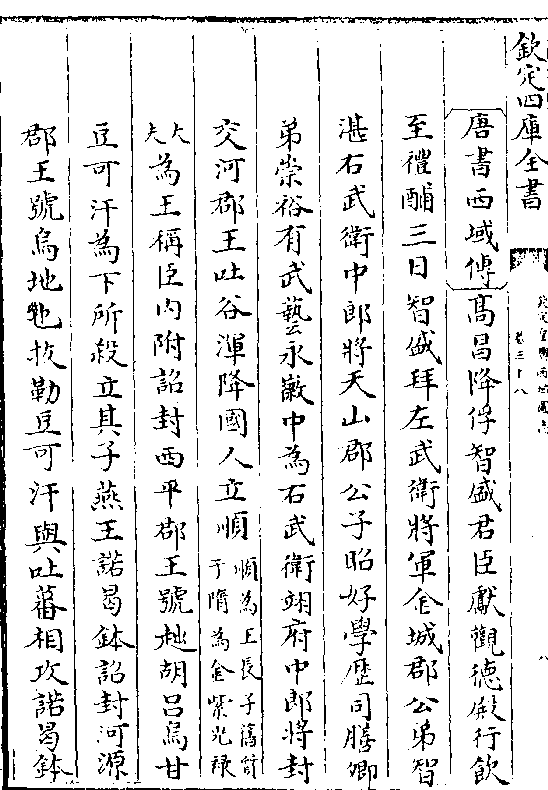 欽定四庫全書
欽定皇輿西域圖志
卷三十八
八
唐書西域傳高昌降俘智盛君臣獻觀德殿行飲
至禮酺三日智盛拜左武衛將軍金城郡公弟智
湛右武衛中郎將天山郡公子昭好學歴司膳卿
弟崇裕有武藝永徽中為右武衛翊府中郎將封
交河郡王吐谷渾降國人立順順為王長子舊質于隋為金紫光祿
大夫為王稱臣内附詔封西平郡王號趉胡吕烏甘
豆可汗為下所殺立其子燕王諾曷鉢詔封河源
郡王號烏地㐌拔勒豆可汗與吐蕃相攻諾曷鉢